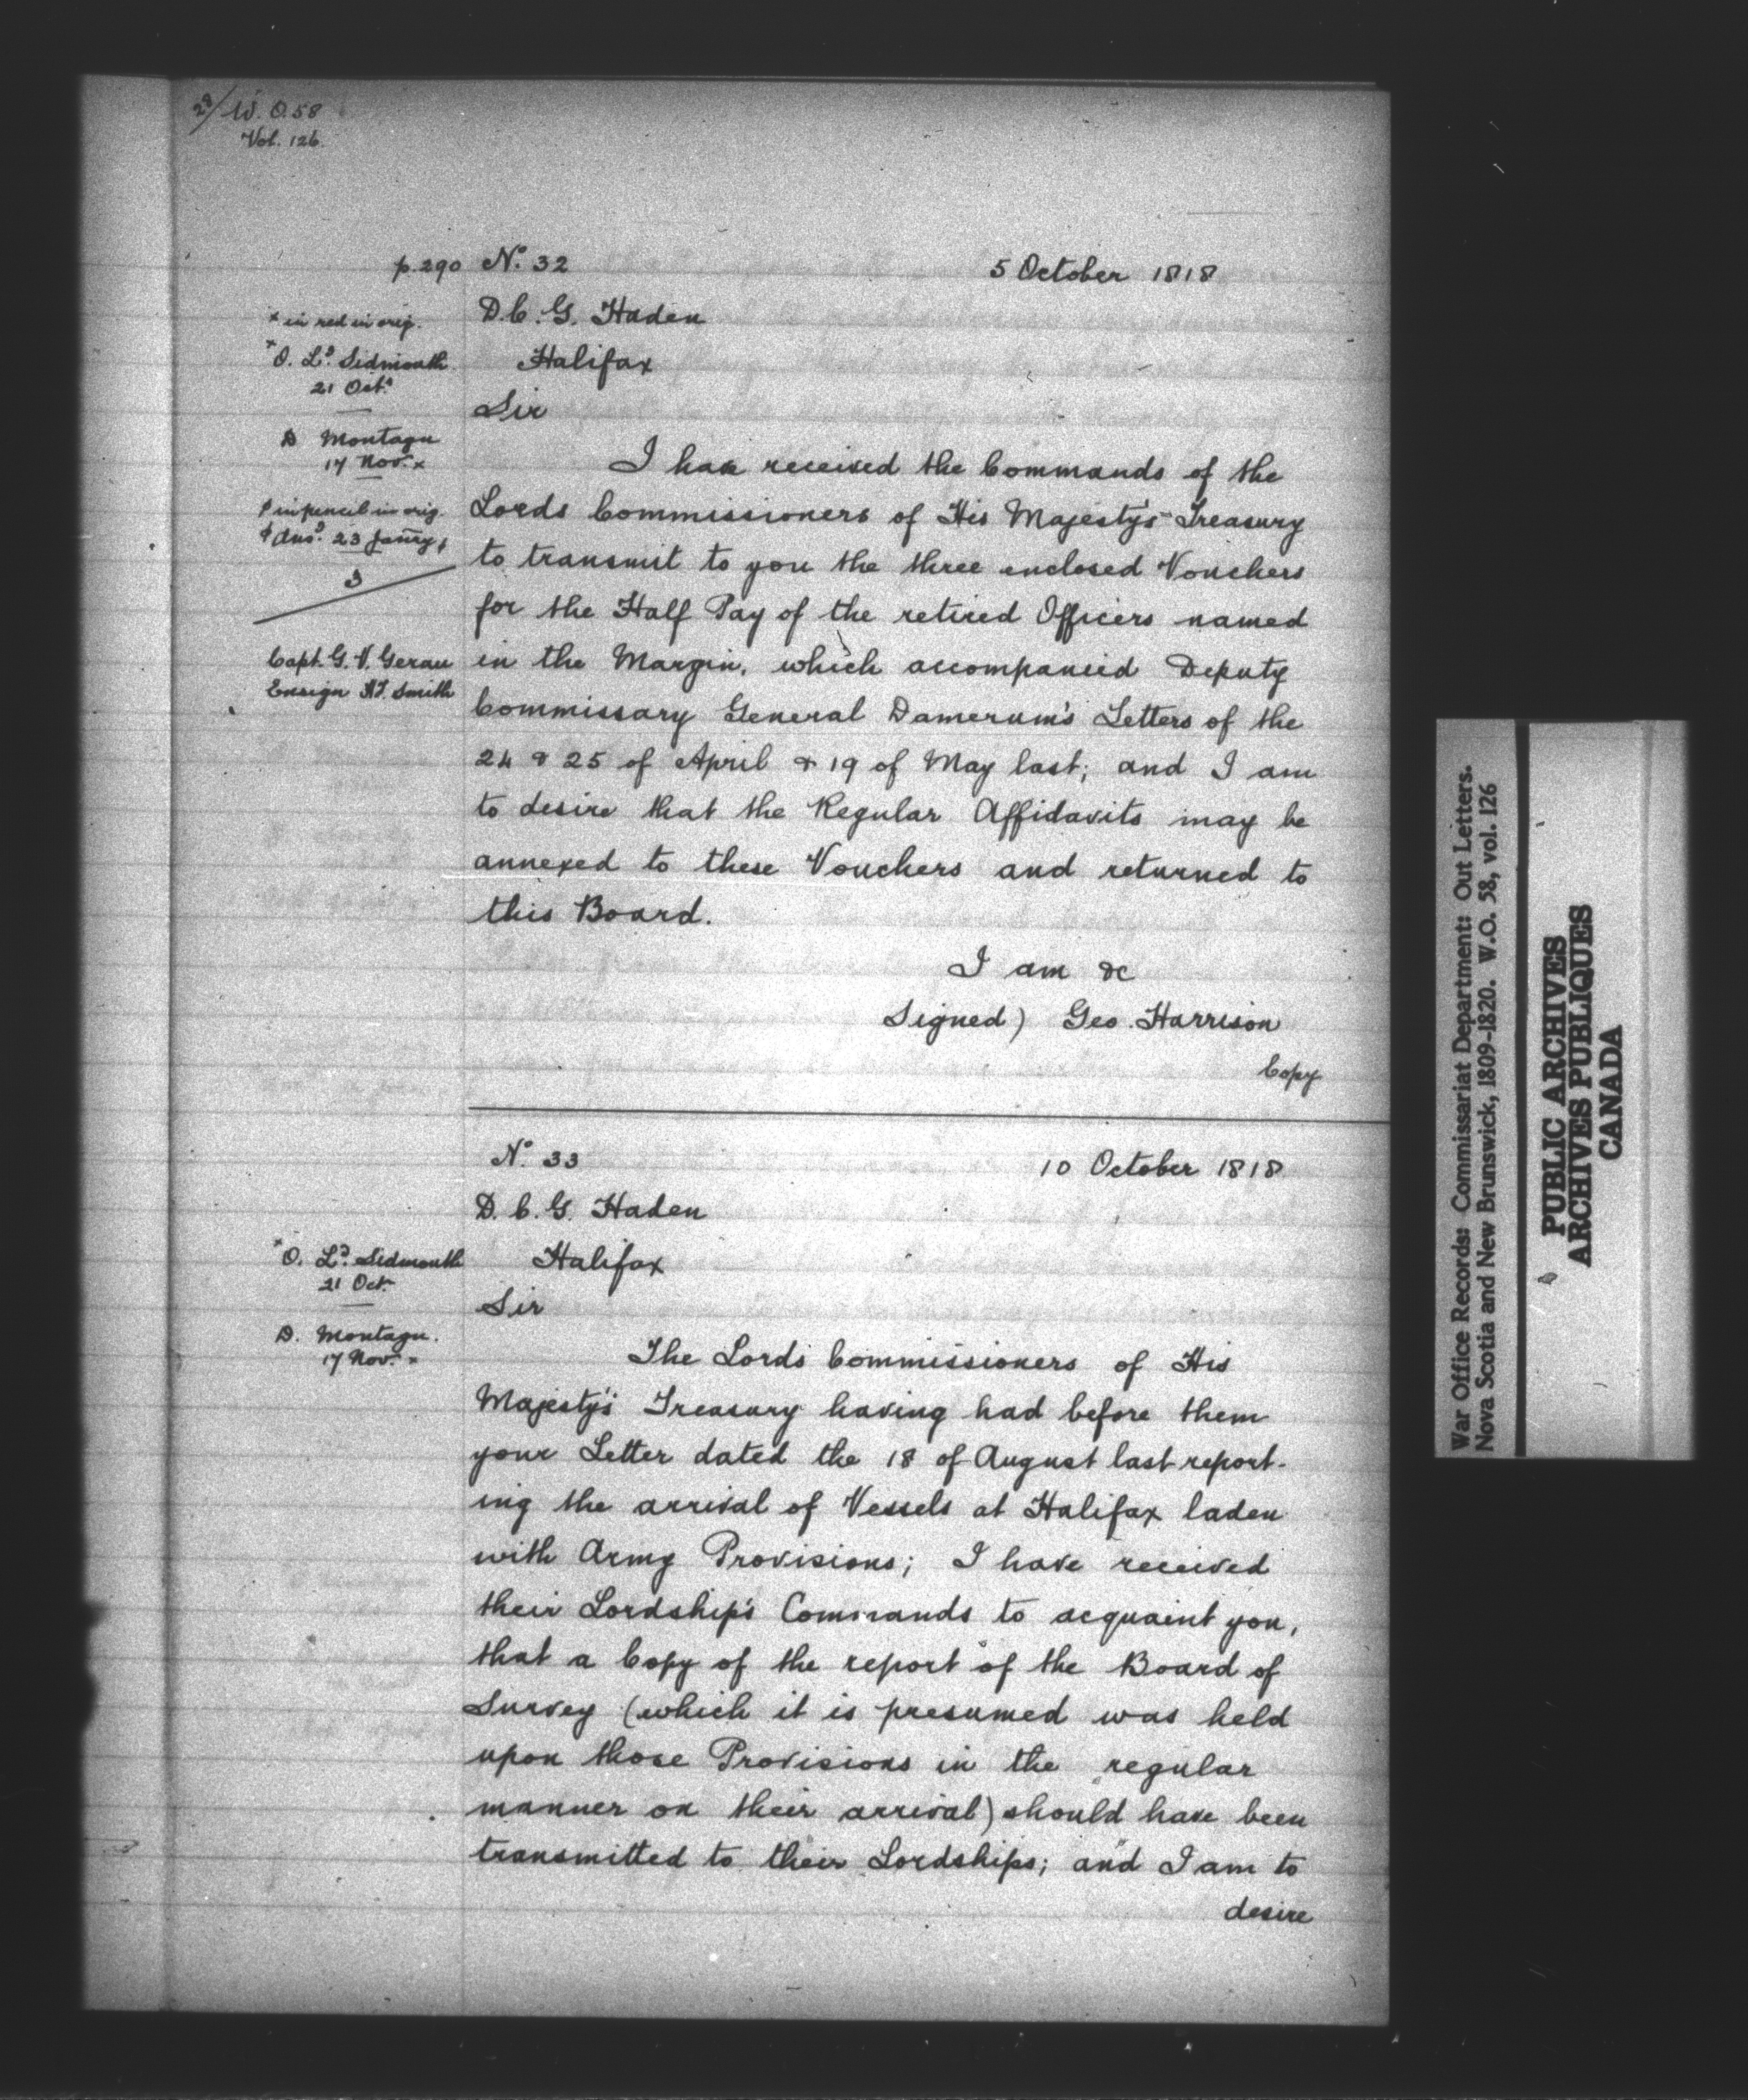 28/ W.O.58
Vol. 126.
p.290 No. 32 5 October 1818
x in red in orig.
D.C.G. Haden
x O. Ld. Sidmouth
21 Oct.
Halifax
Sir
D Montagu
17 Nov. x
I have received the Commands of the
Lords Commissioners of His Majesty's Treasury
ɫ in pencil in orig.
ɫ Ans.d 23 Janry ɫ
3
to transmit to you the three enclosed Vouchers
for the Half Pay of the retired Officers named
Capt. G. V. Gerau
Ensign A.T. Smith
in the Margin, which accompanied Deputy
Commissary General Damerum's Letters of the
24 & 25 of April & 19 of May last; and I am
to desire that the Regular Affidavits may be
annexed to these Vouchers and returned to
this Board.
I am &c
Signed) Geo. Harrison
Copy
No. 33 10 October 1818
D.C.G. Haden
x O. Ld. Sidmouth
21 Oct.
Halifax
Sir
D. Montagu.
17 Nov. x
The Lords Commissioners of His
Majesty's Treasury having had before them
your Letter dated the 18 of August last report-
ing the arrival of Vessels at Halifax laden
with Army Provisions; I have received
their Lordship's Commands to acquaint you,
that a Copy of the report of the Board of
Survey (which it is presumed was held
upon those Provisions in the regular
manner on their arrival) should have been
transmitted to their Lordships; and I am to
desire
War Office Records: Commissariat Department: Out Letters.
Nova Scotia and New Brunswick, 1809-1820. W.O. 58, vol. 126
PUBLIC ARCHIVES
ARCHIVES PUBLIQUES
CANADA